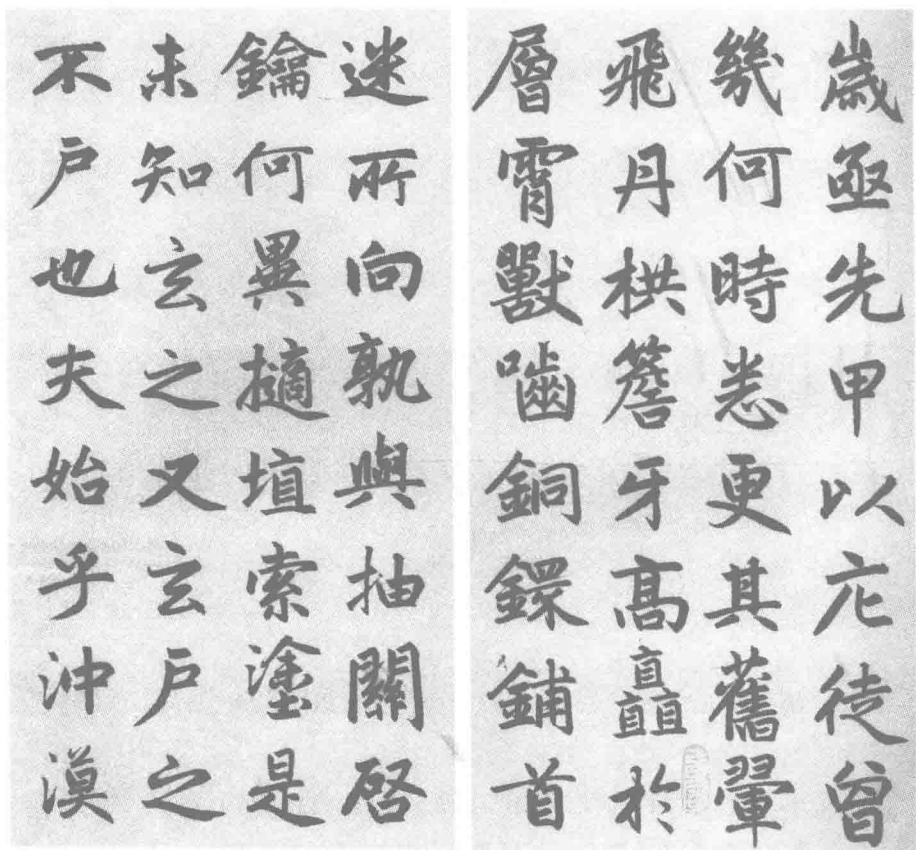 歲亟先甲以庀徒曾
幾何時悉更其舊翬
飛丹栱簷牙高矗於
層霄獸嚙銅鐶鋪首
迷所向孰與抽關啓
鑰何異擿埴索塗是
未知玄之又玄戶之
不戶也夫始乎沖漠